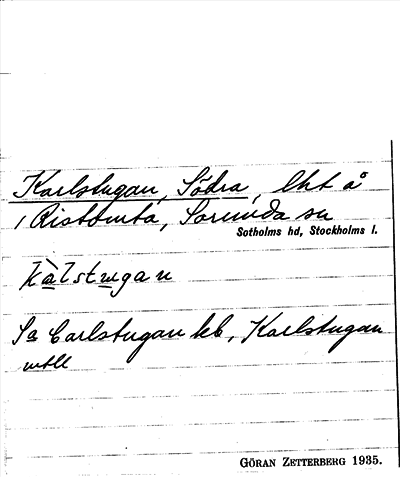 Karlstugan, Södra, lht å
Ristomta, Sorunda sn
Sotholms hd, Stockholms l.
kàlstugan
Sa Carlstugan kb, Karlstugan
mtll
GÖRAN ZETTERBERG 1935.